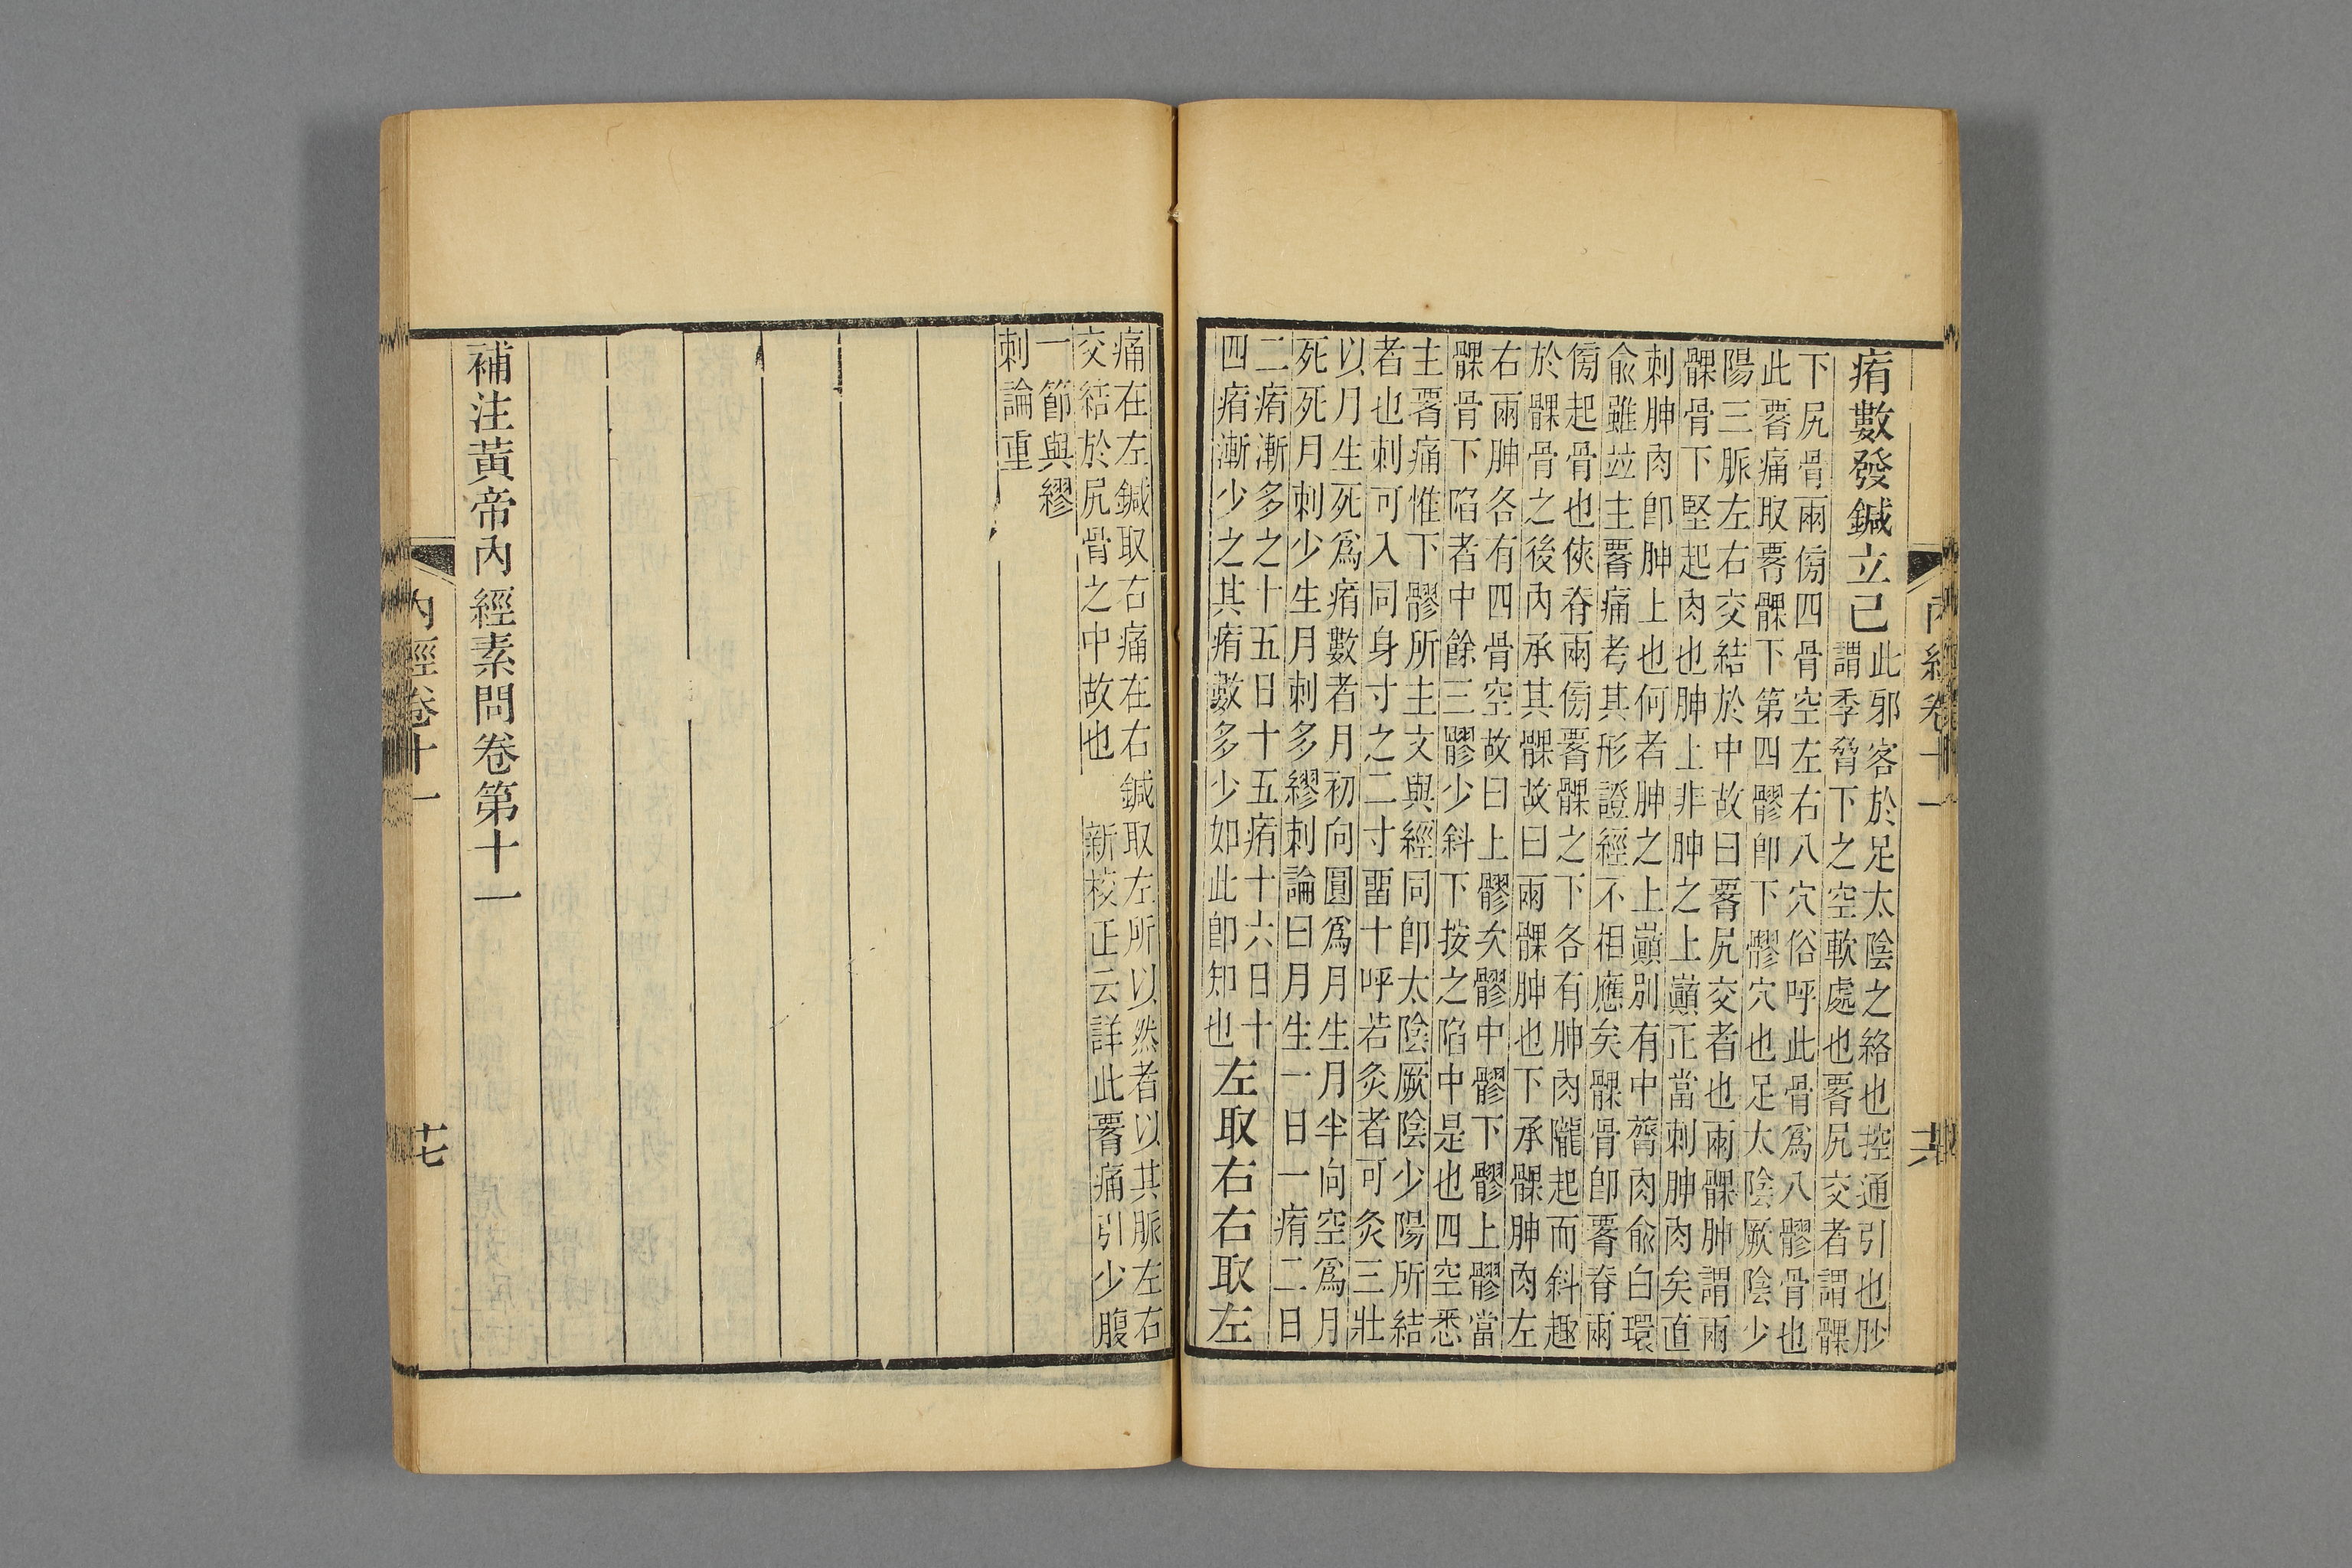 內經卷十一 十六
痏數發鍼立已
此邪客於足太陰之絡也控通引也䏚
謂季脅下之空軟處也腰尻交者謂髁
下尻骨兩傍四骨空左右八穴俗呼此骨爲八髎骨也
此腰痛取腰髁下第四髎卽下髎穴也足太陰厥陰少
陽三脈左右交結於中故曰腰尻交者也兩髁胂謂兩
髁骨下堅起肉也胂上非胂之上巔正當刺胂肉矣直
刺胂肉卽胂上也何者胂之上巔別有中膂肉兪白環
兪雖竝主腰痛考其形證經不相應矣髁骨卽腰脊兩
傍起骨也俠脊兩傍腰髁之下各有胂肉隴起而斜趣
於髁骨之後內承其髁故曰兩髁胂也下承髁胂肉左
右兩胂各有四骨空故曰上髎次髎中髎下髎上髎當
髁骨下陷者中餘三髎少斜下按之陷中是也四空悉
主腰痛惟下髎所主文與經同卽太陰厥陰少陽所結
者也刺可入同身寸之二寸畱十呼若灸者可灸三壯
以月生死爲痏數者月初向圓爲月生月半向空爲月
死死月刺少生月刺多繆刺論曰月生一日一痏二日
二痏漸多之十五日十五痏十六日十
四痏漸少之其痏數多少如此卽知也
左取右右取左
痛在左鍼取右痛在右鍼取左所以然者以其脈左右
交結於尻骨之中故也 新校正云詳此腰痛引少腹
一節與繆
刺論重
補注黃帝內經素問卷第十一
內經卷十一 十七